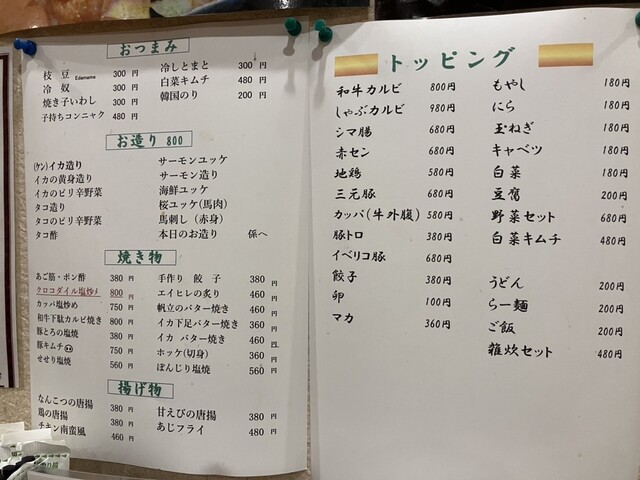 おつまみ
枝豆 Edamame 300円
冷奴 300円
焼き子いわし 300円
子持ちコンニャク 480円
冷しとまと 300円
白菜キムチ 480円
韓国のり 200円
お造り 800
(ケン)イカ造り
イカの黄身造り
イカのピリ辛野菜
タコ造り
タコのピリ辛野菜
タコ酢
サーモンユッケ
サーモン造り
海鮮ユッケ
桜ユッケ(馬肉)
馬刺し(赤身)
本日のお造り 係へ
焼き物
あご筋・ポン酢 380円
クロコダイル塩炒メ 800円
カッパ塩炒め 750円
和牛下駄カルビ焼き 800円
豚とろの塩焼 380円
豚キムチ 750円
せせり塩焼 560円
手作り餃子 380円
エイヒレの炙り 460円
帆立のバター焼き 460円
イカ下足バター焼き 360円
イカ バター焼き 460円
ホッケ(切身) 360円
ぼんじり塩焼 560円
揚げ物
なんこつの唐揚 380円
鶏の唐揚 380円
チキン南蛮風 460円
甘えびの唐揚 380円
あじフライ 480円
トッピング
和牛カルビ 800円
しゃぶカルビ 980円
シマ腸 680円
赤セン 680円
地鶏 580円
三元豚 680円
カッパ(牛外腹) 580円
豚トロ 380円
イベリコ豚 680円
餃子 380円
卵 100円
マカ 360円
もやし 180円
にら 180円
玉ねぎ 180円
キャベツ 180円
白菜 180円
豆腐 200円
野菜セット 680円
白菜キムチ 480円
うどん 200円
らー麺 200円
ご飯 200円
雑炊セット 480円